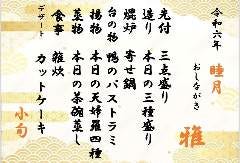 令和六年 睦月
おしながき
雅
先付 三点盛り
造り 本日の三種盛り
焜炉 寄せ鍋
台の物 鴨のパストラミ
揚物 本日の天婦羅四種
蒸物 本日の茶碗蒸し
食事 雑炊
デザート カットケーキ
小旬